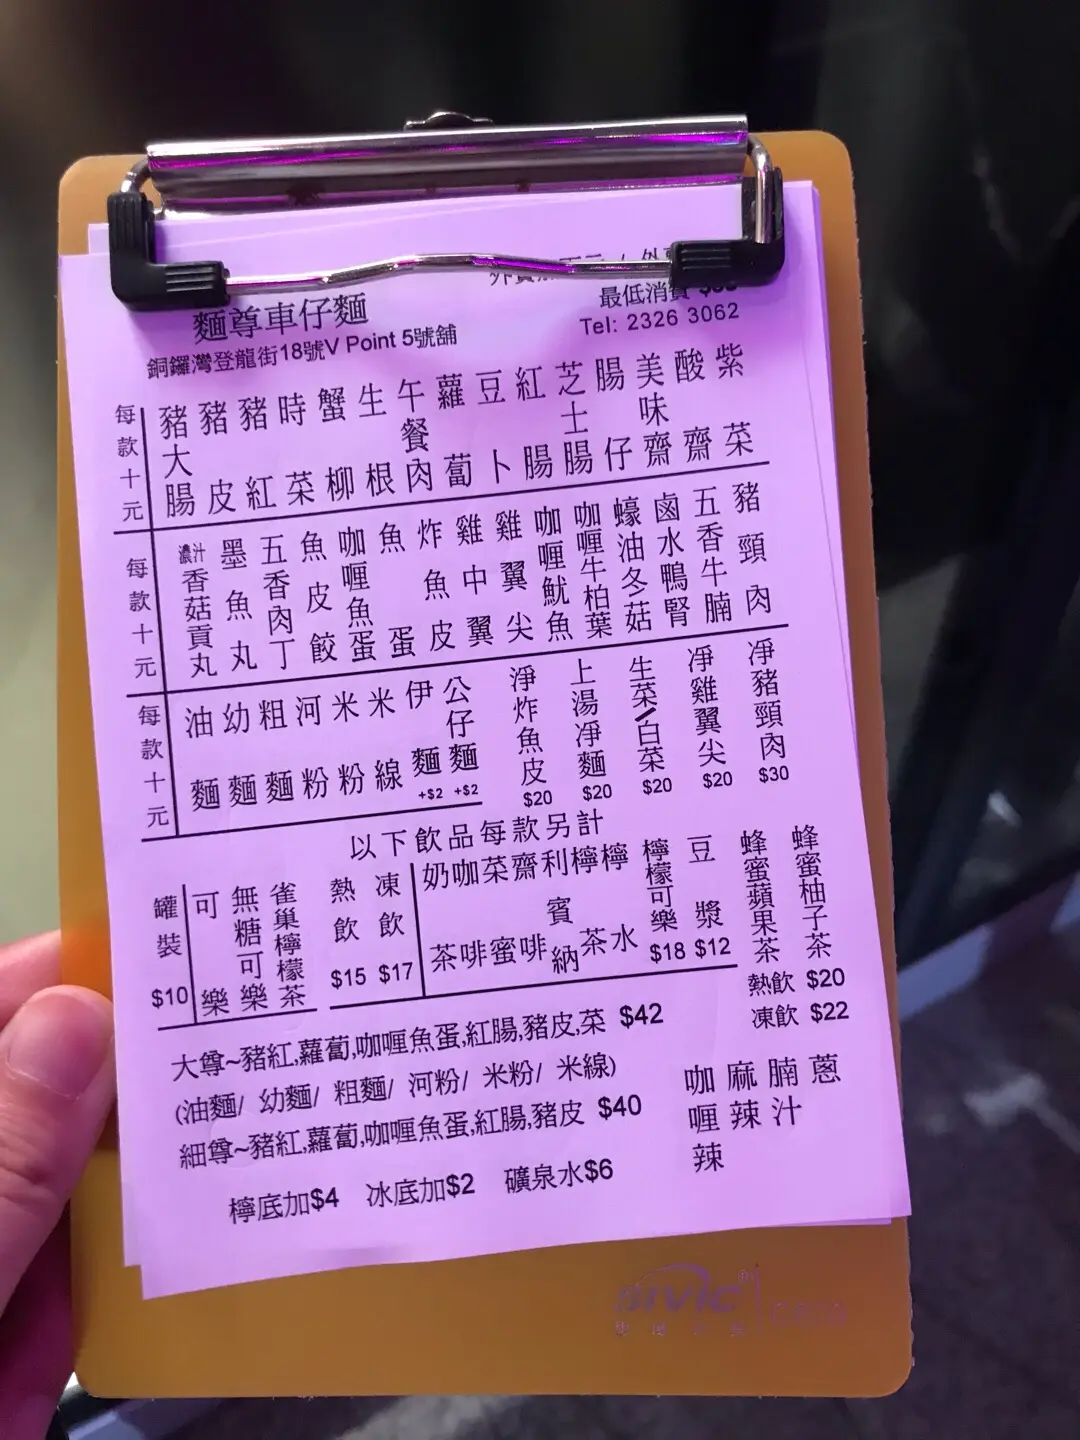 麵尊車仔麵
銅鑼灣登龍街18號V Point 5號舖
最低消費
Tel: 2326 3062
每款十元
豬大腸
豬皮
豬紅
時菜
蟹柳
生根
午餐肉
蘿蔔
豆卜
紅腸
芝士腸
腸仔
美味齋
酸齋
紫菜
每款十元
濃汁香菇貢丸
墨魚丸
五香肉丁
魚皮餃
咖喱魚蛋
魚蛋
炸魚皮
雞中翼
雞翼尖
咖喱魷魚
咖喱牛柏葉
蠔油冬菇
鹵水鴨腎
五香牛腩
豬頸肉
每款十元
油麵
幼麵
粗麵
河粉
米粉
米線
伊麵 +$2
公仔麵 +$2
淨炸魚皮 $20
上湯淨麵 $20
生菜/白菜 $20
凈雞翼尖 $20
凈豬頸肉 $30
以下飲品每款另計
罐裝 $10
可樂
無糖可樂
雀巢檸檬茶
熱飲 $15
凍飲 $17
奶茶
咖啡
菜蜜
齋啡
利賓納
檸茶
檸水
檸檬可樂 $18
豆漿 $12
蜂蜜蘋果茶
蜂蜜柚子茶
熱飲 $20
凍飲 $22
大尊~豬紅,蘿蔔,咖喱魚蛋,紅腸,豬皮,菜 $42
(油麵/ 幼麵/ 粗麵/ 河粉/ 米粉/ 米線)
細尊~豬紅,蘿蔔,咖喱魚蛋,紅腸,豬皮 $40
咖喱辣
麻辣
腩汁
蔥
檸底加$4 冰底加$2 礦泉水$6